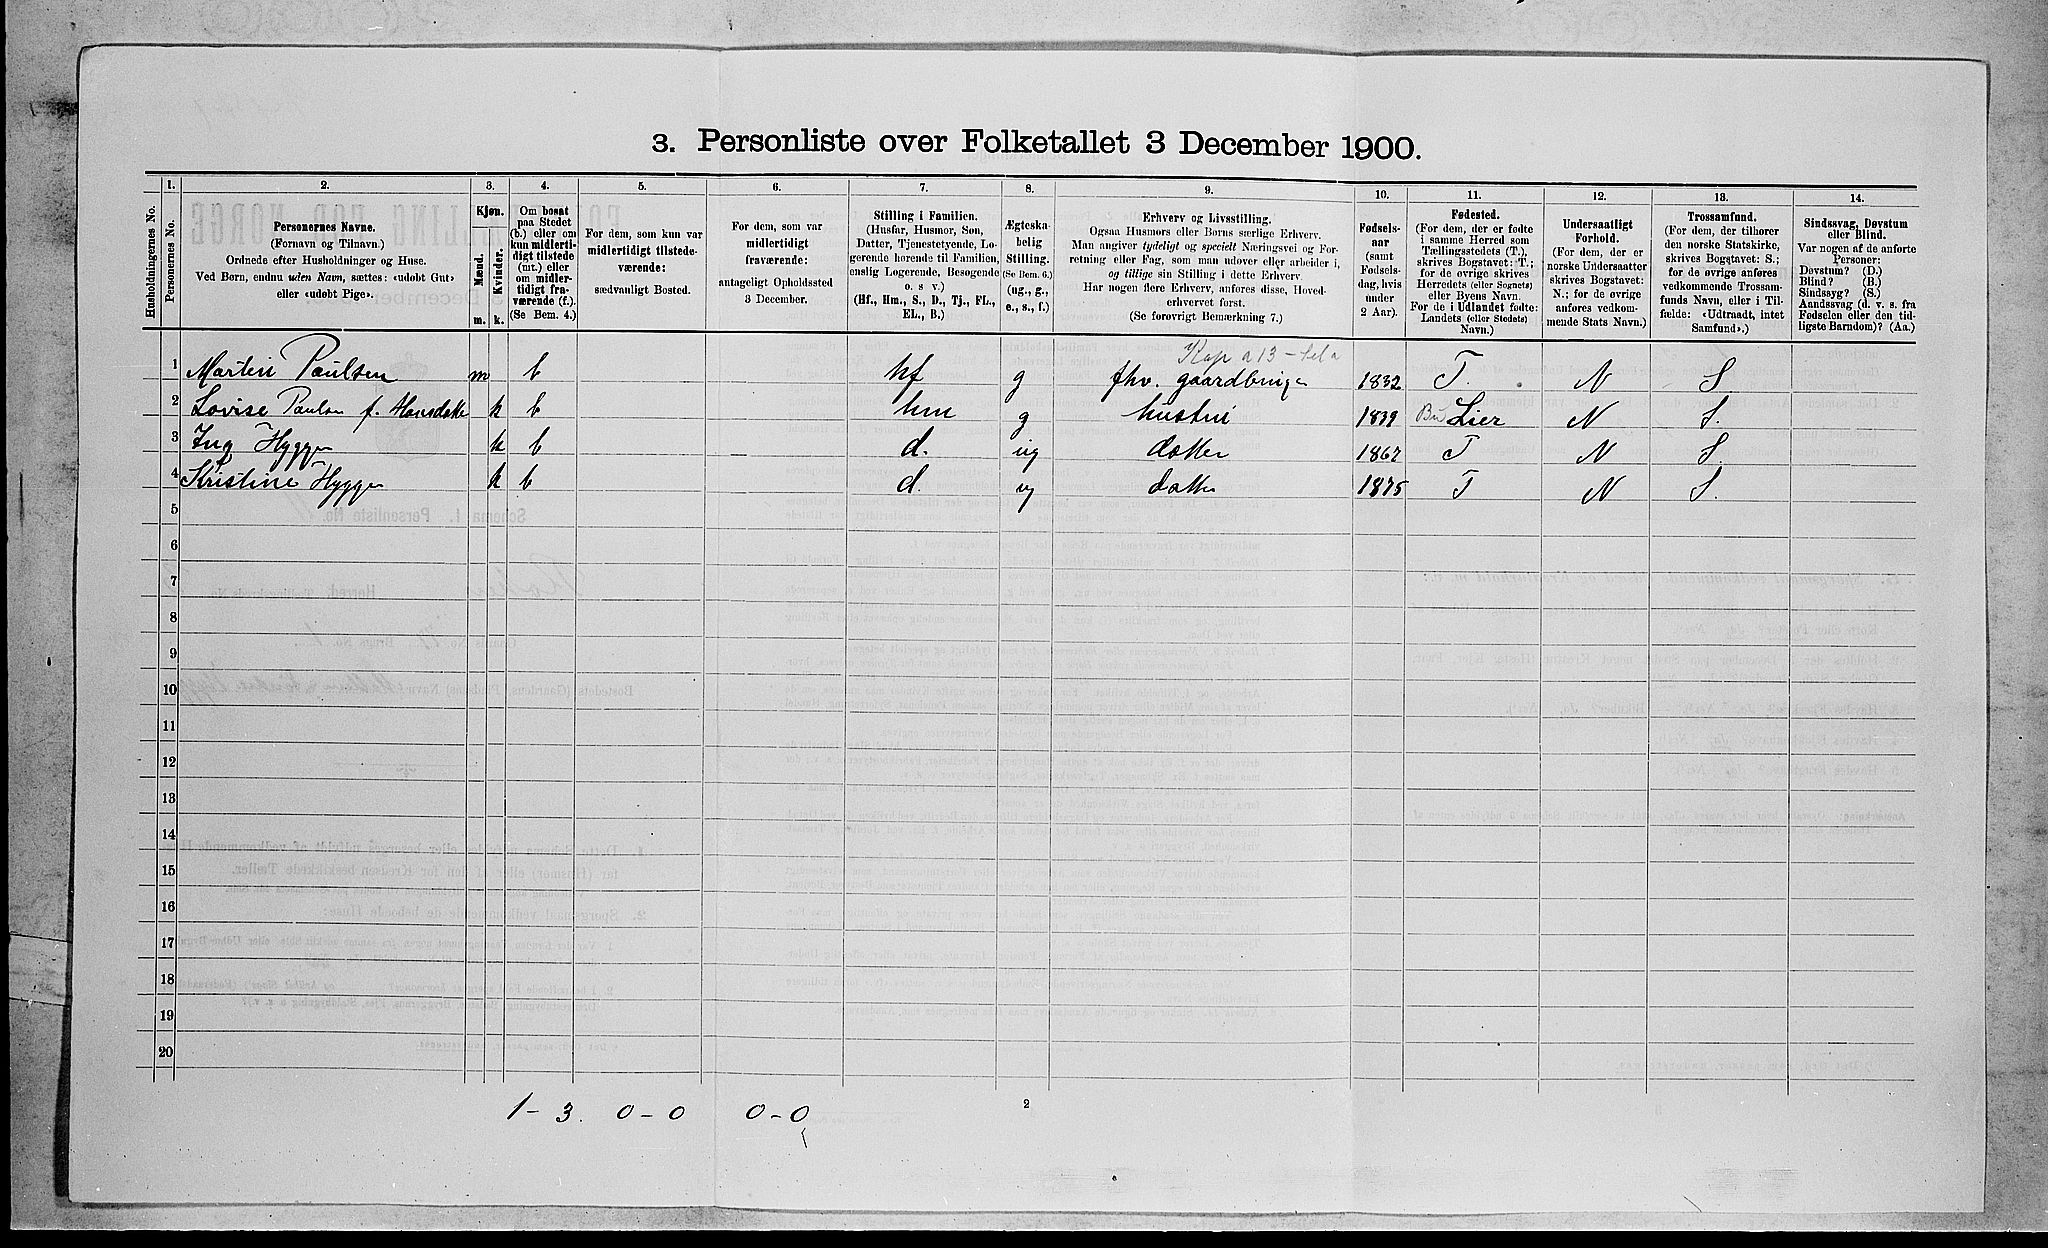 3. Personliste over Folketallet 3 December 1900.
1. 2. 3. 4. 5. 6. 7. 8. 9. 10. 11. 12. 13. 14.
Husholdningernes No.
Personernes No.
Personernes Navne.
(Fornavn og Tilnavn.)
Ordnede efter Husholdninger og Huse.
Ved Børn, endnu uden Navn, sættes: «udøbt Gut»
eller «udøbt Pige».
Kjøn.
Mænd.
Kvinder.
m. k.
Om bosat
paa Stedet
(b.) eller om
kun midlerti-
digt tilstede
(mt.) eller
om midler-
tidigt fra-
værende (f.).
(Se Bem. 4.)
For dem, som kun var
midlertidigt tilstede-
værende:
sædvanligt Bosted.
For dem, som var
midlertidigt
fraværende:
antageligt Opholdssted
3 December.
Stilling i Familien.
(Husfar, Husmor, Søn,
Datter, Tjenestetyende, Lo-
gerende hørende til Familien,
enslig Logerende, Besøgende
o. s. v.)
(Hf., Hm., S., D., Tj., FL.,
EL., B.)
Ægteska-
belig
Stilling.
(Se Bem. 6.)
(ug., g.,
e., s., f.)
Erhverv og Livsstilling.
Ogsaa Husmors eller Børns særlige Erhverv.
Man angiver tydeligt og specielt Næringsvei og For-
retning eller Fag, som man udøver eller arbeider i,
og tillige sin Stilling i dette Erhverv.
Har nogen flere Erhverv, anføres disse, Hoved-
erhvervet først.
(Se forøvrigt Bemærkning 7.)
Fødsels-
aar
(samt
Fødsels-
dag, hvis
under
2 Aar).
Fødested.
(For dem, der er fødte
i samme Herred som
Tællingsstedets (T.),
skrives Bogstavet: T.;
for de øvrige skrives
Herredets (eller Sognets)
eller Byens Navn.
For de i Udlandet fødte:
Landets (eller Stedets)
Navn.)
Undersaatligt
Forhold.
(For dem, der er
norske Undersaatter
skrives Bogstavet:
N.; for de øvrige
anføres vedkom-
mende Stats Navn.)
Trossamfund.
(For dem, der tilhører
den norske Statskirke,
skrives Bogstavet: S.;
for de øvrige anføres
vedkommende Trossam-
funds Navn, eller i Til-
fælde: «Udtraadt, intet
Samfund».)
Sindssvag, Døvstum
eller Blind.
Var nogen af de anførte
Personer:
Døvstum? (D.)
Blind? (B.)
Sindssyg? (S.)
Aandssvag (d. v. s. fra
Fødselen eller den tid-
ligste Barndom)? (Aa.)
Kap a 13
1 Martin Paulsen m b hf g fhv. gaardbruger 1832 T. N S.
2 Lovise Paulsen f. Hansdatter k b hm g hustru 1839 Bu Lier N S.
3 Ing Hygge k b d. ug datter 1867 T N S.
4 Kristine Hygge k b d. ug datter 1875 T N S.
5
6
7
8
9
10
11
12
13
14
15
16
17
18
19
20
1 - 3. 0 - 0 0 - 0
2